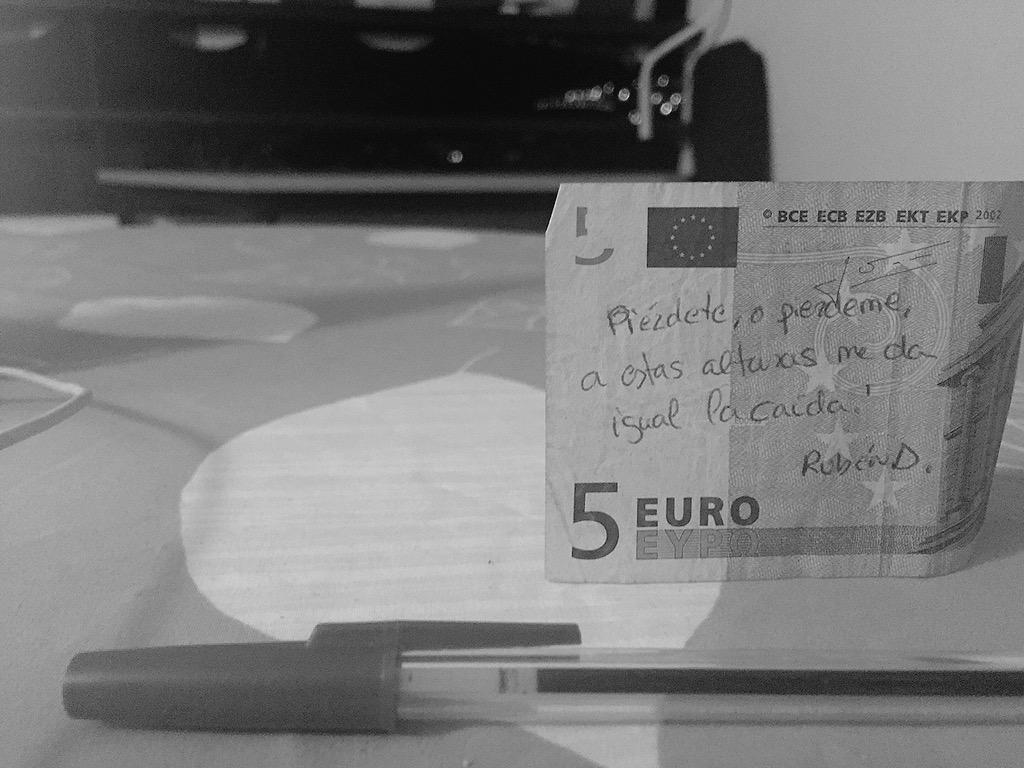 © BCE ECB EZB EKT EKP 2002
Piérdete, o pierdeme,
a estas alturas me da
igual la caída.'
Rubén D.
5 EURO
ΕΥΡΩ